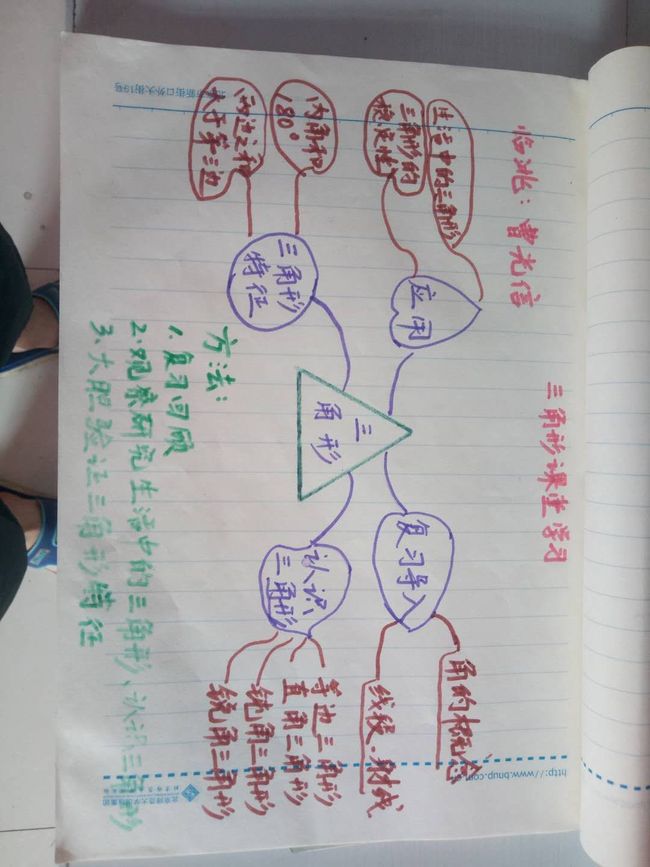 三角形课堂学习
临洮：曹光信
三角形
复习导入
角的概念
线段、射线
认识
三角形
等边三角形
直角三角形
钝角三角形
锐角三角形
三角形
特征
内角和
180°
两边之和
大于第三边
应用
生活中的三角形
三角形的
稳定性
方法：
1.复习回顾
2.观察研究生活中的三角形、认识三角形
3.大胆验证三角形特征
http://www.bnup.com
新街口外大街19号